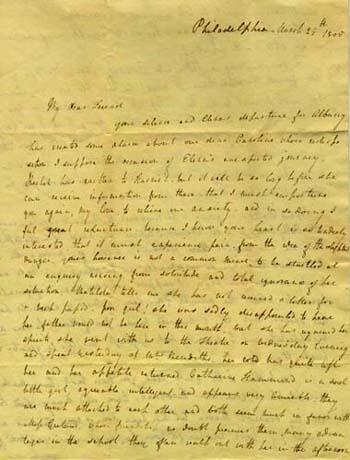 Philadelphia March 25th 1808
My dear Friend
your silence and Eliza's departure for Albany
has created some alarm about our dear Caroline whose
I suppose the occasion of Eliza's unexpected journey.
has written to but it will be so long before she
can receive information from there that I must
you again, my love to relieve our anxiety, and in so doing I
feel great reluctance because I know your heart is so tenderly
interested that it must experience pain from the idea of the
danger, yours however is not a common mind to be startled at
an enquiry arising from solicitude and total ignorance of her
situation Matilda tells me she has not missed a letter for
a week past. poor girl! she was sadly disappointed to hear
her father would not be here in this month but she has regained her
spirits she went with us to the Theatre on Wednesday Evening
and spent yesterday at Mrs her cold has quite left
her and her appetite returned Catherine is a sweet
little girl, agreeable intelligent and appears very amiable they
are much attached to each other and both seem much in favor with
Miss whose friendship no doubt procures them many advan
tages in the school they often walk out with her in the afternoon